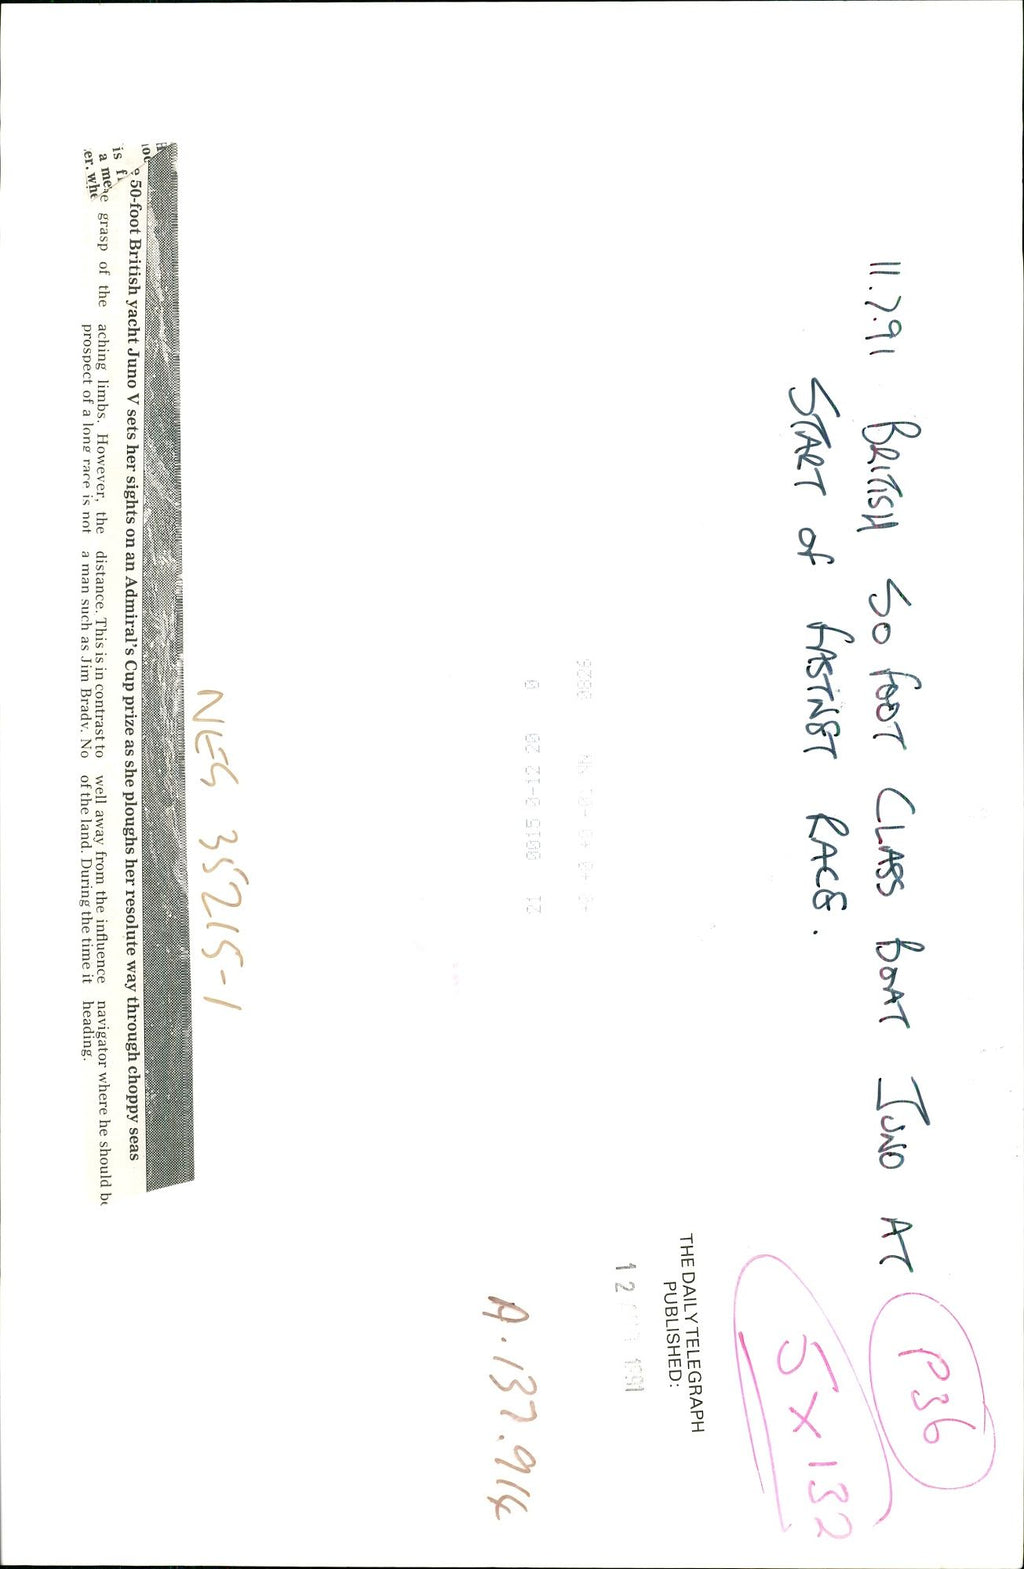 11.7.91 BRITISH 50 FOOT CLASS BOAT JUNO AT
START OF FASTNET RACE.
P36
5 x 132
THE DAILY TELEGRAPH
PUBLISHED:
12 1991
A.137.914
NES 35215-1
50-foot British yacht Juno V sets her sights on an Admiral's Cup prize as she ploughs her resolute way through choppy seas
is
a me
er. whe
grasp of the
aching limbs. However, the
prospect of a long race is not
distance. This is in contrast to
a man such as Jim Brady. No
well away from the influence
of the land. During the time it
navigator where he should be
heading.